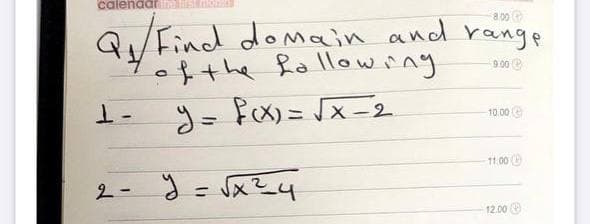 calendar
8.00
Q1/ Find domain and range
of the following
9.00
1- y = f(x) = √x-2
10.00
11.00
2- y = √x²-4
12.00